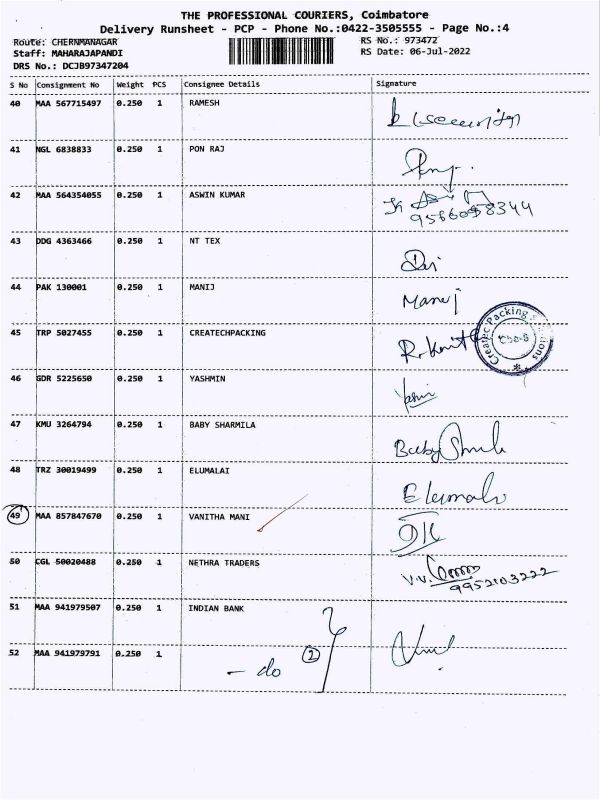 THE PROFESSIONAL COURIERS, Coimbatore
Delivery Runsheet - PCP - Phone No.:0422-3505555 - Page No.:4
Route: CHERNMANAGAR RS No.: 973472
Staff: MAHARAJAPANDI RS Date: 06-Jul-2022
DRS No.: DCJB97347204
S No Consignment No Weight PCS Consignee Details Signature
40 MAA 567715497 0.250 1 RAMESH
41 NGL 6838833 0.250 1 PON RAJ
42 MAA 564354055 0.250 1 ASWIN KUMAR
43 DDG 4363466 0.250 1 NT TEX
44 PAK 130001 0.250 1 MANIJ Manij
45 TRP 5027455 0.250 1 CREATECHPACKING
46 GDR 5225650 0.250 1 YASHMIN
47 KMU 3264794 0.250 1 BABY SHARMILA Baby
48 TRZ 30019499 0.250 1 ELUMALAI Elumalai
49 MAA 857847670 0.250 1 VANITHA MANI
50 CGL 50020488 0.250 1 NETHRA TRADERS V.V.
9952103222
51 MAA 941979507 0.250 1 INDIAN BANK
52 MAA 941979791 0.250 1 - do 2